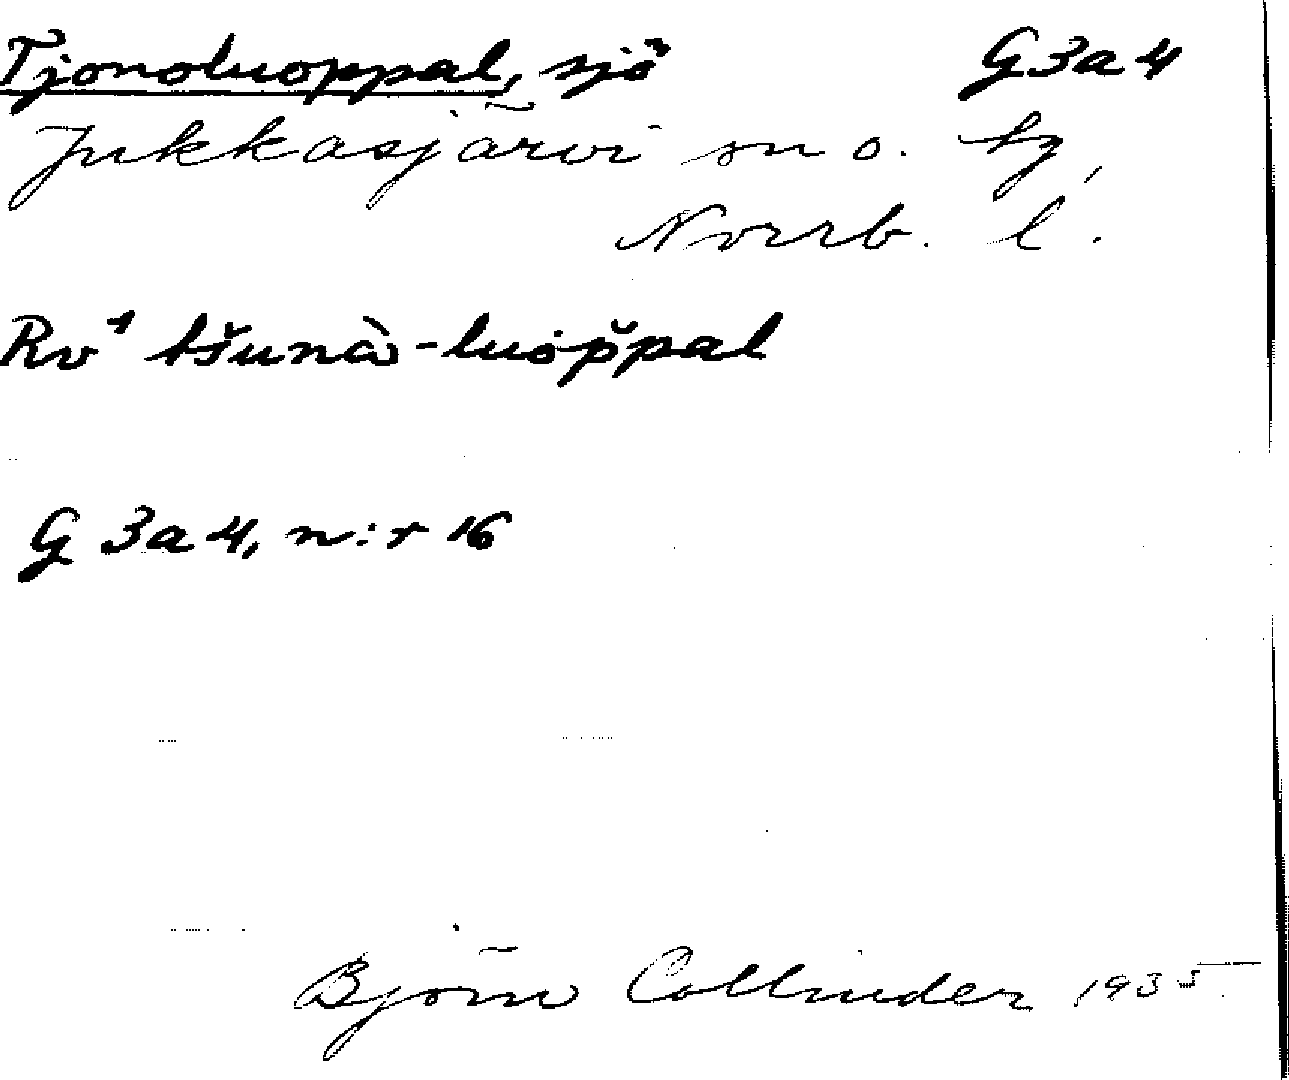 Tjonoluoppal, sjö G3a4
Jukkasjärvi sn o. tg,
Norrb. l.
Rv¹ tšunà-luòp̌pal
G 3a4, n:r 16
Björn Collinder 1935